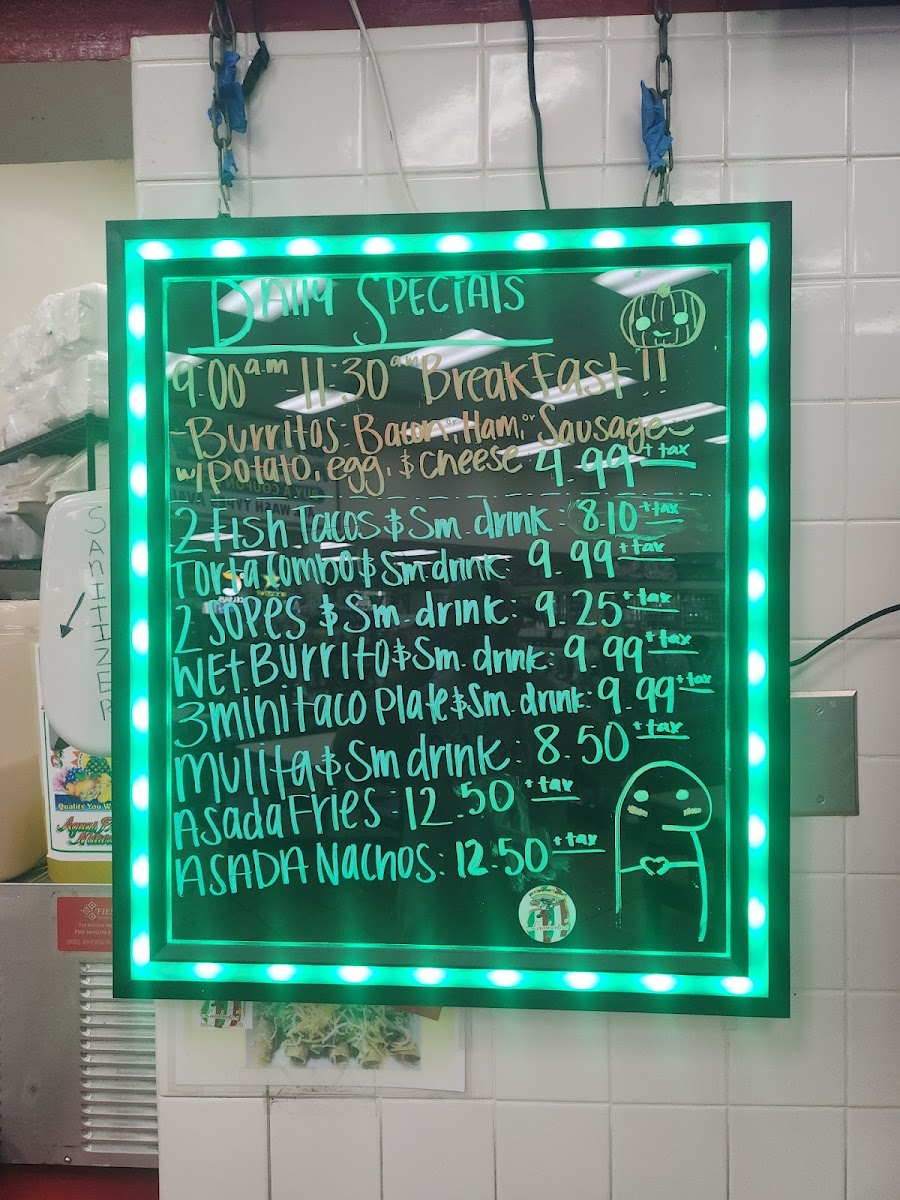 Daily Specials
9:00am-11:30am Breakfast!!
-Burritos: Bacon, or Ham, or Sausage
w/ potato, egg, & cheese 4.99 + tax
2 Fish Tacos & Sm. drink: 8.10 + tax
Torta Combo & Sm. drink: 9.99 + tax
2 SOPES & Sm. drink: 9.25 + tax
Wet Burrito & Sm. drink: 9.99 + tax
3 mini taco Plate & Sm. drink: 9.99 + tax
Mulita & Sm drink: 8.50 + tax
Asada Fries: 12.50 + tax
ASADA Nachos: 12.50 + tax
SANITIZER
Quality You